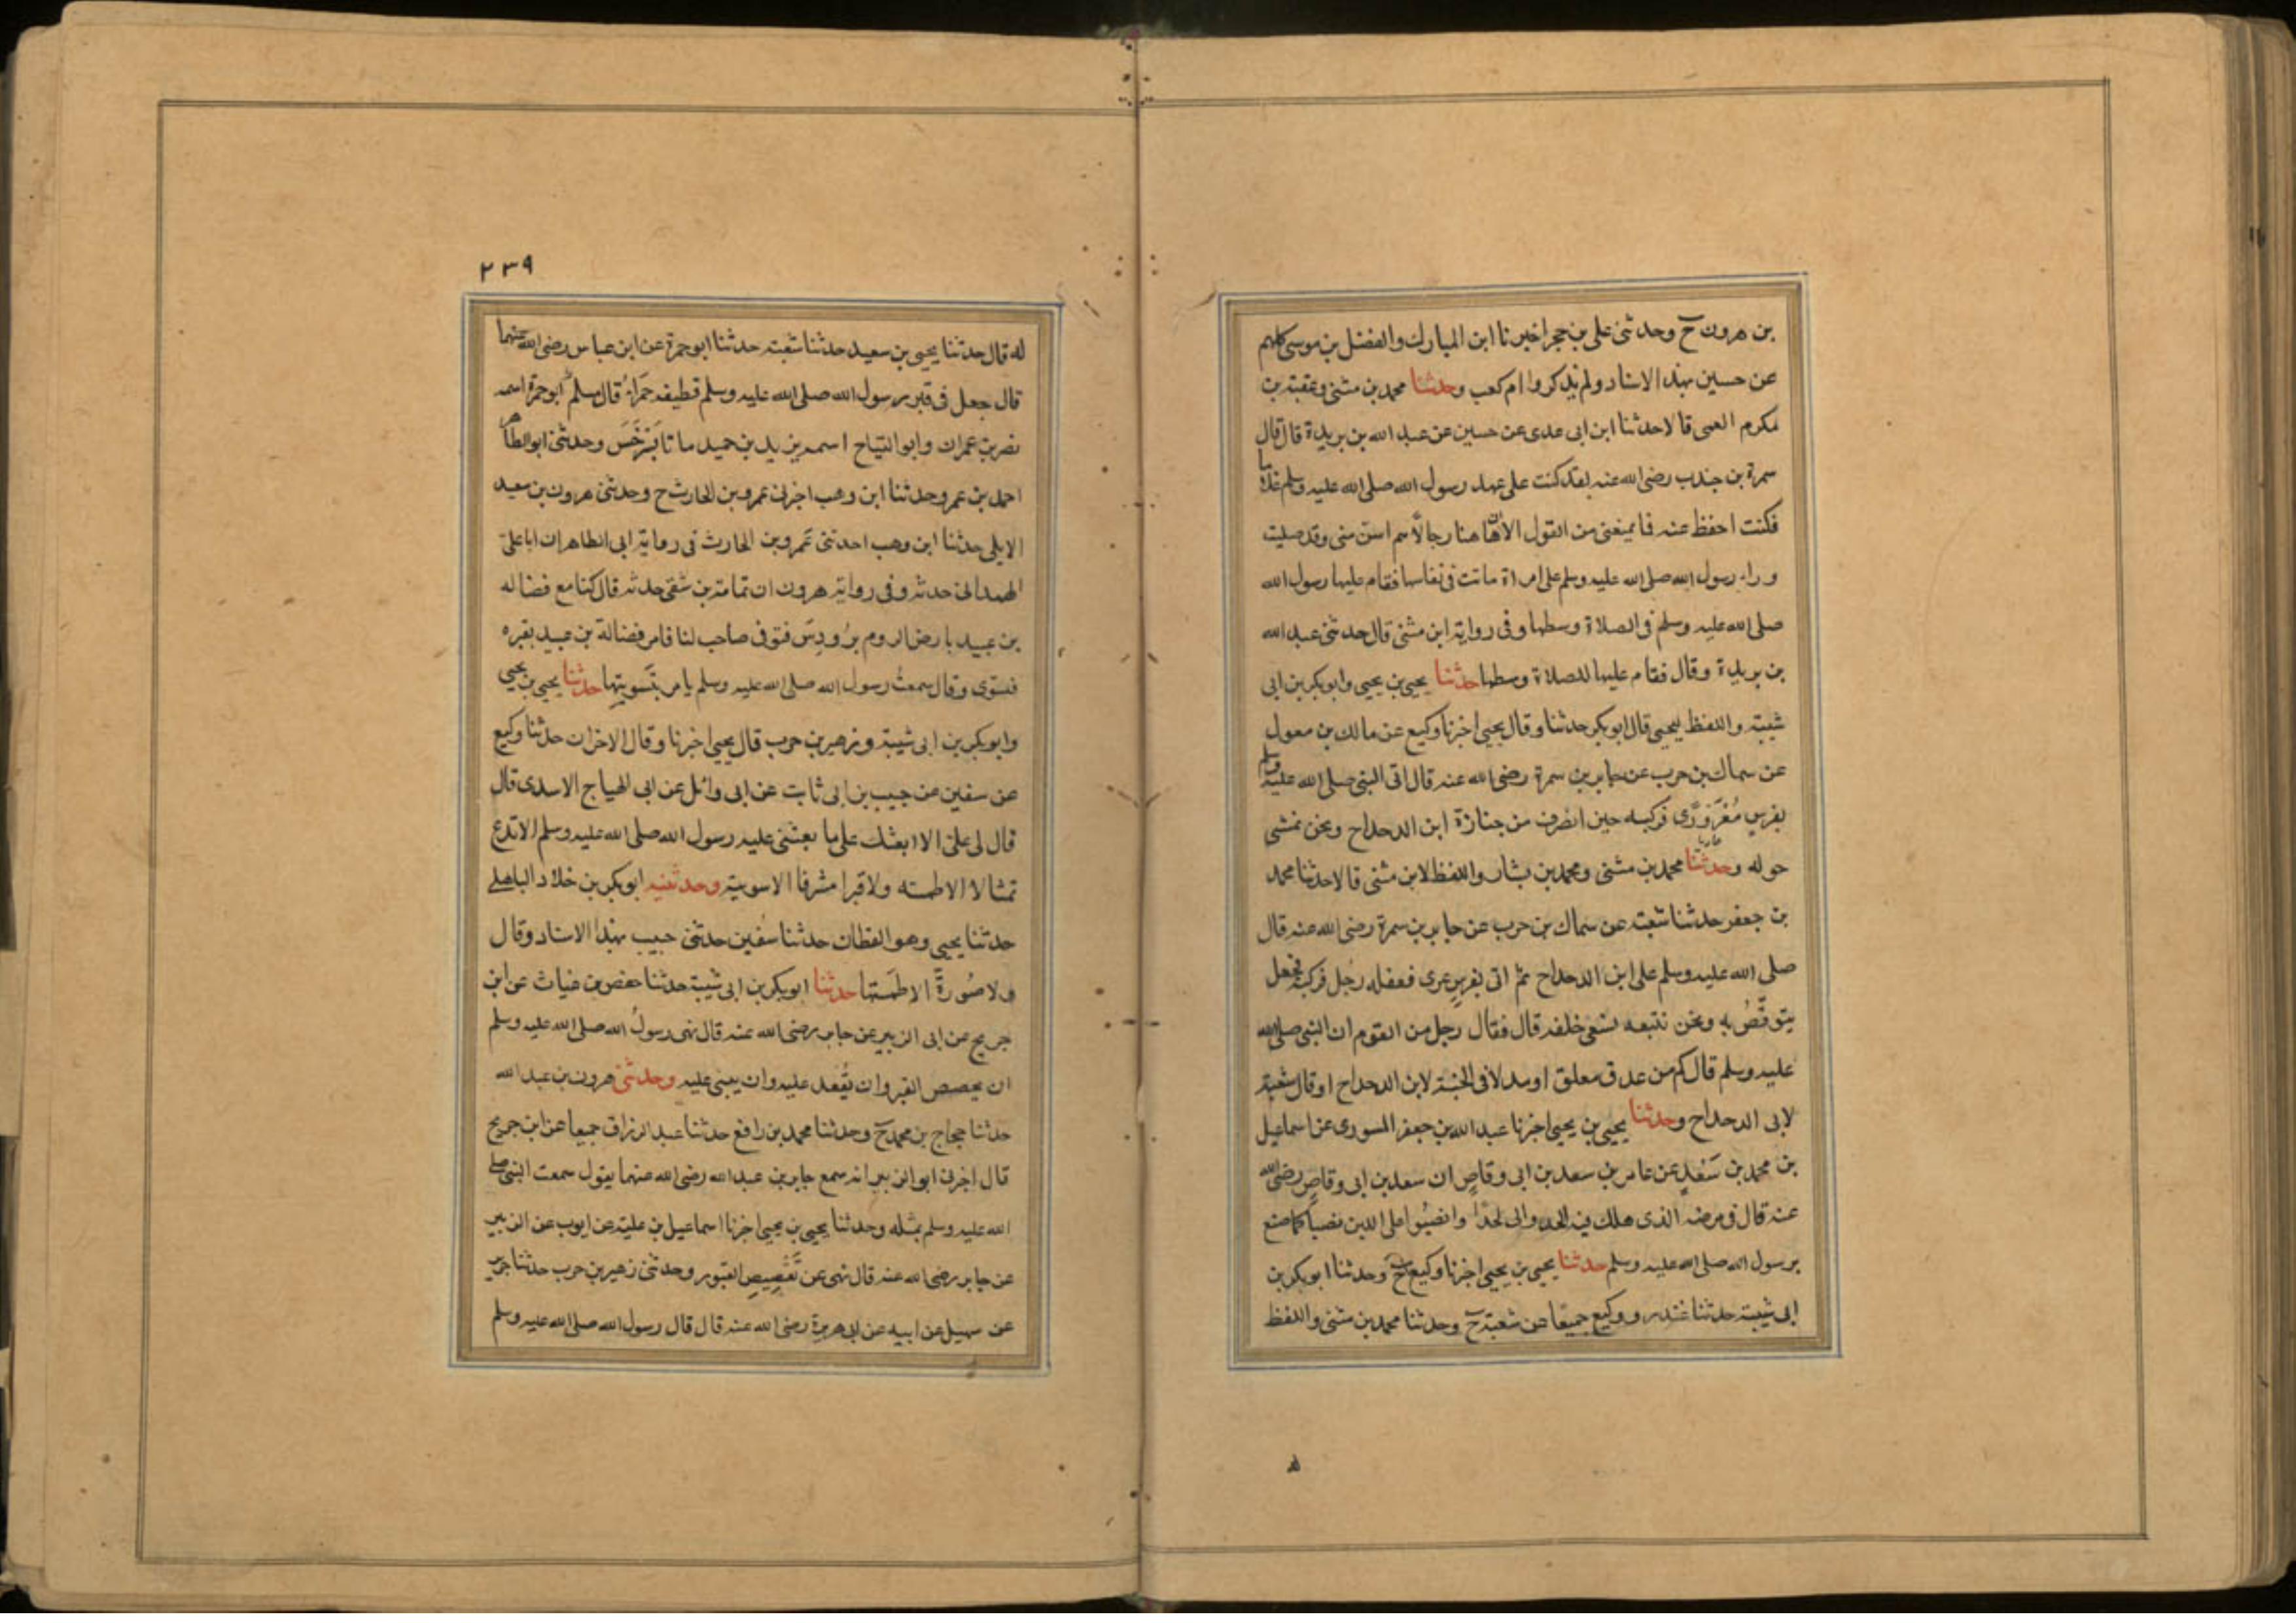 بن هرون ح وحدثنى على بن حجر اخبرنا ابن المبارك والفضل بن موسى كلهم
عن حسين بهذا الاسناد ولم يذكروا ام كعب وحدثنا محمد بن مثنى وعقبة بن
مكرم العمى قالا حدثنا ابن ابى عدى عن حسين عن عبد الله بن بريدة قال قال
سمرة بن جندب رضى الله عنه لقد كنت على عهد رسول الله صلى الله عليه وسلم غلاما
فكنت احفظ عنه فما يمنعنى من القول الا ان هاهنا رجالا هم اسن منى وقد صليت
وراء رسول الله صلى الله عليه وسلم على امراة ماتت فى نفاسها فقام عليها رسول الله
صلى الله عليه وسلم فى الصلاة وسطها وفى رواية ابن مثنى قال حدثنى عبد الله
بن بريدة وقال فقام عليها للصلاة وسطها حدثنا يحيى بن يحيى وابو بكر بن ابى
شيبة واللفظ ليحيى قال ابو بكر حدثنا وقال يحيى اخبرنا وكيع عن مالك بن معول
عن سماك بن حرب عن جابر بن سمرة رضى الله عنه قال اتى النبى صلى الله عليه وسلم
بفرس فركبه حين انصرف من جنازة ابن الدحداح ونحن نمشى
حوله وحدثنا محمد بن مثنى ومحمد بن بشار واللفظ لابن مثنى قالا حدثنا محمد
بن جعفر حدثنا شعبة عن سماك بن حرب عن جابر بن سمرة رضى الله عنه قال
صلى الله عليه وسلم على ابن الدحداح ثم اتى بفرس عرى فعقله رجل فركبه فجعل
يتوقص به ونحن نتبعه نسعى خلفه قال فقال رجل من القوم ان النبى صلى الله
عليه وسلم قال كم من عدق معلق او مدلا فى الجنة لابن الدحداح او قال شعبة
لابى الدحداح وحدثنا يحيى بن يحيى اخبرنا عبد الله بن جعفر المسورى عن اسماعيل
بن محمد بن سَعْدٍ عن عامر بن سعد بن ابى وقاص ان سعد بن ابى وقاص رضى الله
عنه قال فى مرضه الذى هلك فيه الحدوا لى لحدا وانصبوا على اللبن نصبا كما صنع
برسول الله صلى الله عليه وسلم حدثنا يحيى بن يحيى اخبرنا وكيع ح وحدثنا ابو بكر بن
ابى شيبة حدثنا غندر ووكيع جميعا عن شعبة ح وحدثنا محمد بن مثنى واللفظ
٢٣٩
له قال حدثنا يحيى بن سعيد حدثنا شعبة حدثنا ابو جمرة عن ابن عباس رضى الله عنهما
قال جعل فى قبر رسول الله صلى الله عليه وسلم قطيفة حمراء قال مسلم ابو جمرة اسمه
نصر بن عمران وابو التياح اسمه يزيد بن حميد ماتا بسرخس وحدثنى ابو الطاهر
احمد بن عمرو حدثنا ابن وهب اخبرنى عمرو بن الحارث ح وحدثنى هرون بن سعيد
الايلى حدثنا ابن وهب احدثنى عمرو بن الحارث فى رواية ابى الطاهر ان ابا على
الهمدانى حدثه وفى رواية هرون ان ثمامة بن شفى حدثه قال كنا مع فضاله
بن عبيد بارض الروم برودس فتوفى صاحب لنا فامر فضالة بن عبيد بقبره
فسوى وقال سمعت رسول الله صلى الله عليه وسلم يامر بتسويتها حدثنا يحيى بن يحيى
وابو بكر بن ابى شيبة وزهير بن حرب قال يحيى اخبرنا وقال الاخران حدثنا وكيع
عن سفين عن حبيب بن ابى ثابت عن ابى وائل عن ابى الهياج الاسدى قال
قال لى على الا ابعثك على ما بعثنى عليه رسول الله صلى الله عليه وسلم الا تدع
تمثالا الا طمسته ولا قبرا مشرفا الا سويته وحدثنيه ابو بكر بن خلاد الباهلى
حدثنا يحيى وهو القطان حدثنا سفين حدثنى حبيب بهذا الاسناد وقال
ولا صُورةً الا طمستها حدثنا ابو بكر بن ابى شيبة حدثنا حفص بن غياث عن ابن
جريج عن ابى الزبير عن جابر رضى الله عنه قال نهى رسول الله صلى الله عليه وسلم
ان يجصص القبر وان يقعد عليه وان يبنى عليه وحدثنى هرون بن عبد الله
حدثنا حجاج بن محمد ح وحدثنا محمد بن رافع حدثنا عبد الرزاق جميعا عن ابن جريج
قال اخبرنى ابو الزبير انه سمع جابر بن عبد الله رضى الله عنهما يقول سمعت النبى صلى
الله عليه وسلم بمثله وحدثنا يحيى بن يحيى اخبرنا اسماعيل بن علية عن ايوب عن الزبير
عن جابر رضى الله عنه قال نهى عن تقصيص القبور وحدثنى زهير بن حرب حدثنا جرير
عن سهيل عن ابيه عن ابى هريرة رضى الله عنه قال قال رسول الله صلى الله عليه وسلم